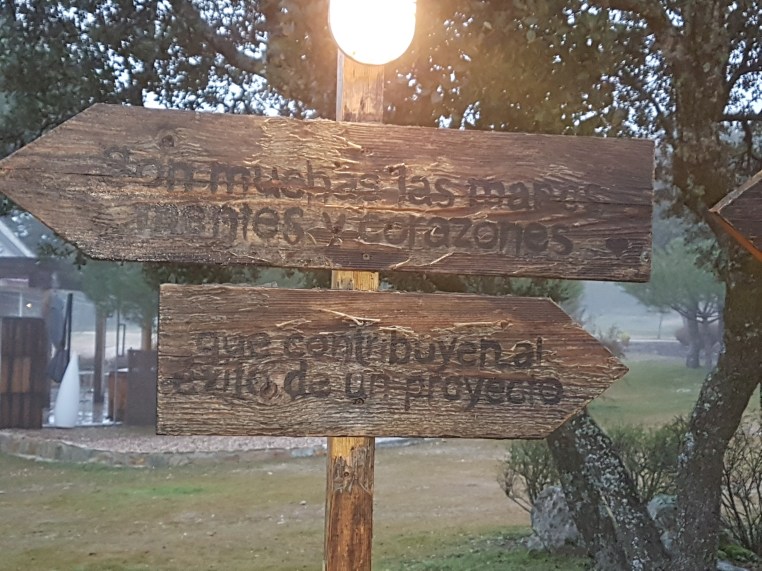 Son muchas las manos
mentes y corazones
que contribuyen al
éxito de un proyecto